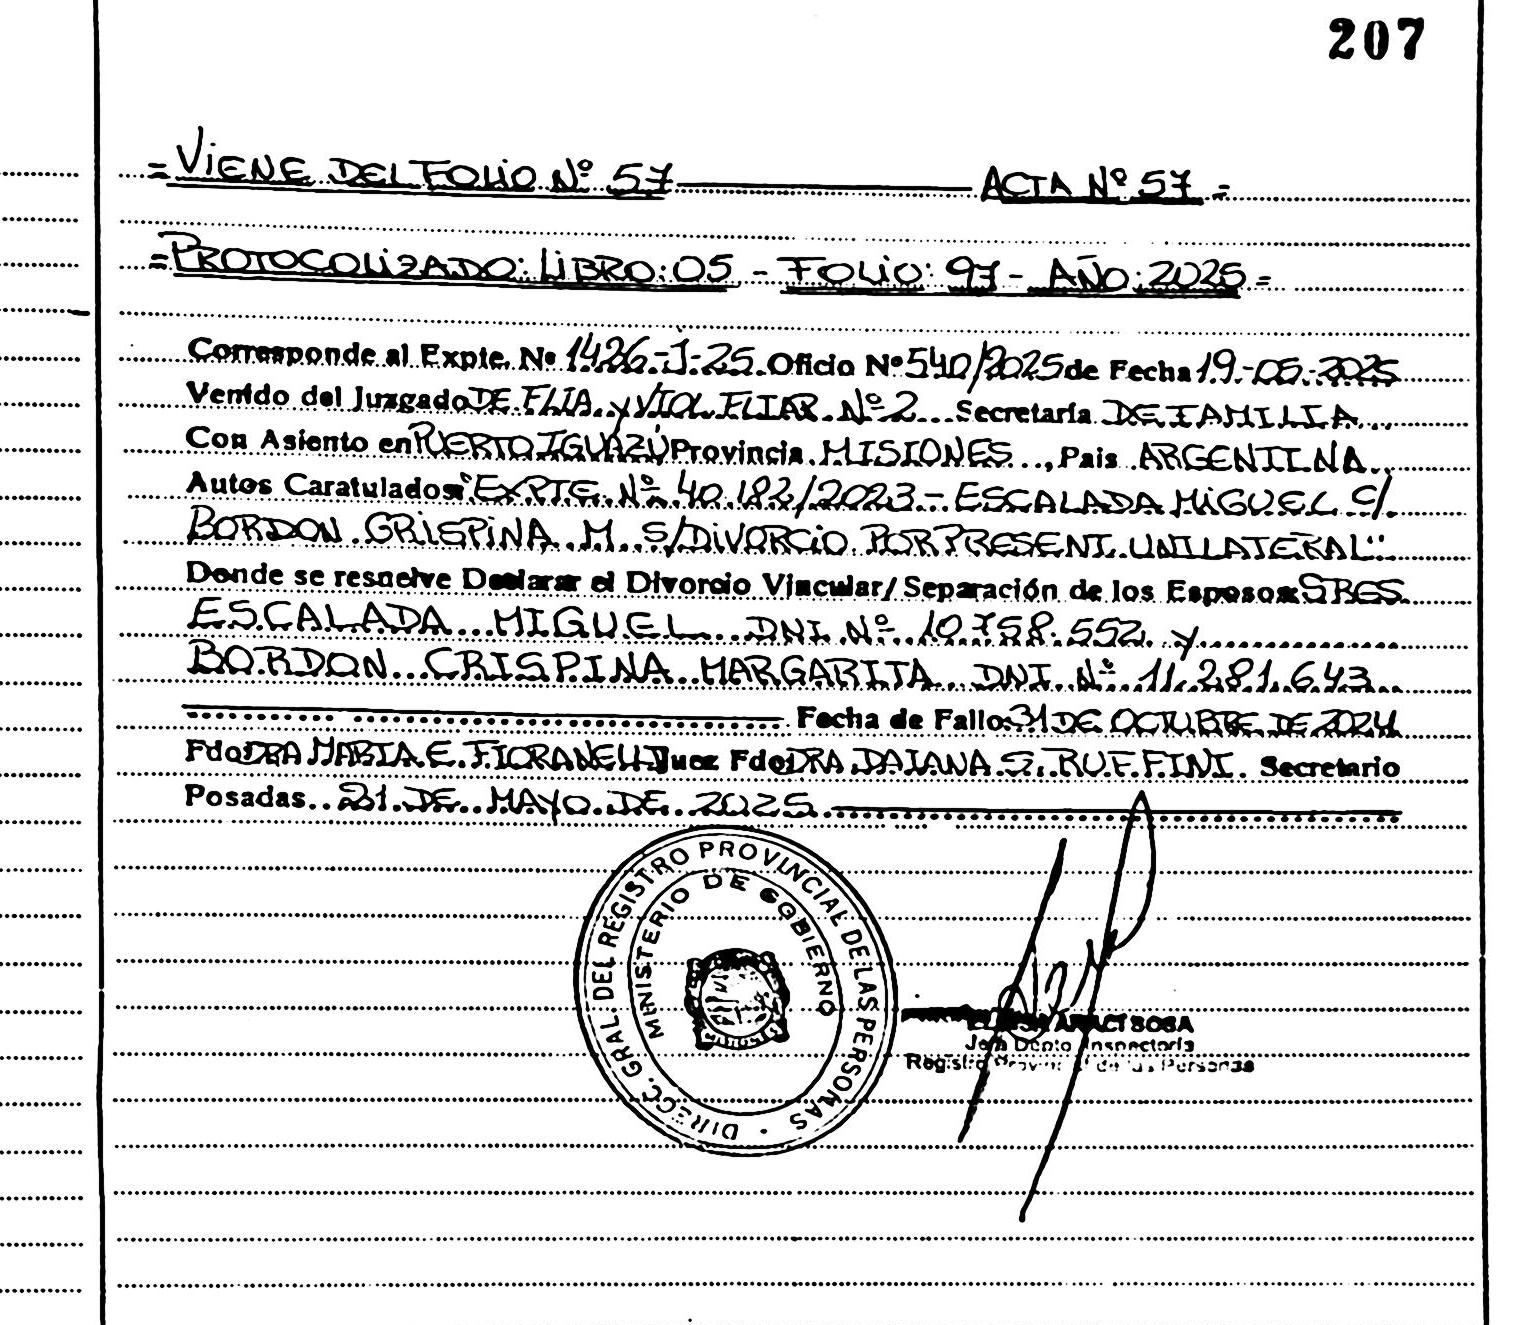 207
=VIENE DEL FOLIO Nº 57 ACTA Nº 57=
=PROTOCOLIZADO: LIBRO: 05 - FOLIO: 97 - AÑO: 2025=
Corresponde al Expte. Nº 1426-J-25. Oficio Nº 540/2025 de Fecha 19-05-2025
Venido del Juzgado DE FLIA. y VIOL. FLIAR. Nº 2... Secretaría DE FAMILIA...
Con Asiento en PUERTO IGUAZÚ Provincia MISIONES..., Pais ARGENTINA..
Autos Caratulados: "EXPTE. Nº 40.182/2023 - ESCALADA MIGUEL C/
BORDON CRISPINA M. S/DIVORCIO POR PRESENT. UNILATERAL"
Donde se resuelve Declarar el Divorcio Vincular/ Separación de los Esposos: SRES.
ESCALADA MIGUEL DNI Nº 10.758.552 y
BORDON CRISPINA MARGARITA DNI Nº 11.281.643
Fecha de Fallo: 31 DE OCTUBRE DE 2024
Fdo DRA MARIA E. FIORANELLI Juez Fdo: DRA DAIANA S. RUFFINI. Secretario
Posadas.. 21 DE MAYO DE 2025
DIRECC. GRAL. DEL REGISTRO PROVINCIAL DE LAS PERSONAS
MINISTERIO DE GOBIERNO
ARACI SOSA
Jefa Dpto Inspectoría
Registro Provincial de las Personas